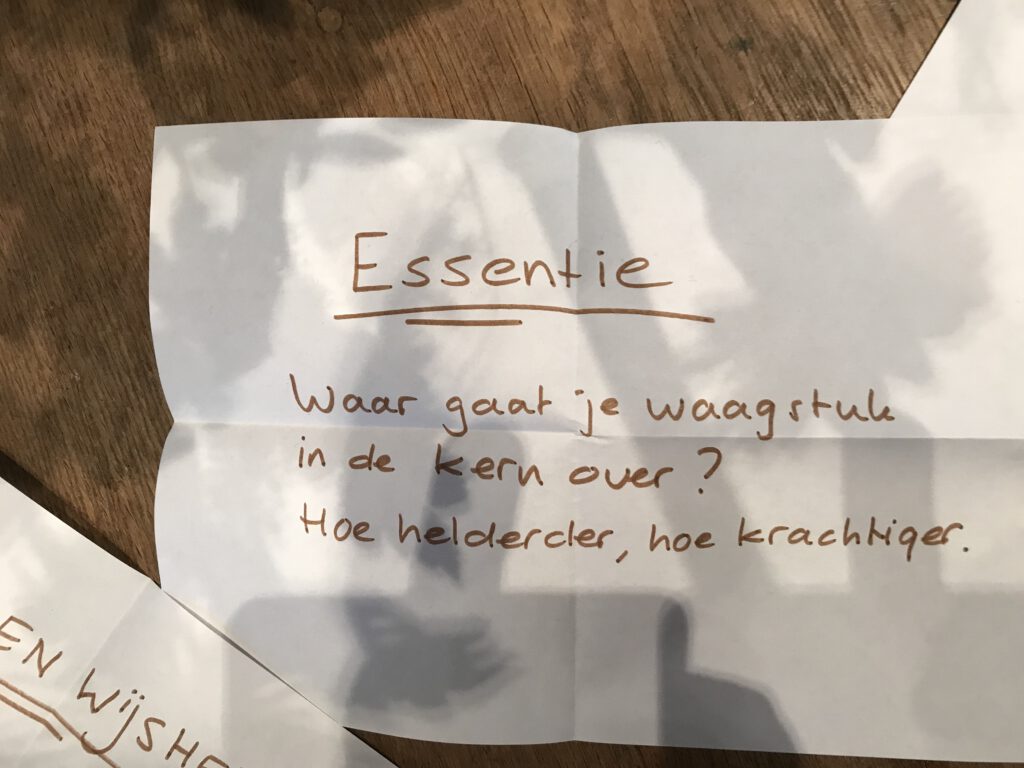 Essentie
Waar gaat je waagstuk
in de kern over?
Hoe helderder, hoe krachtiger.
EN WijSHE